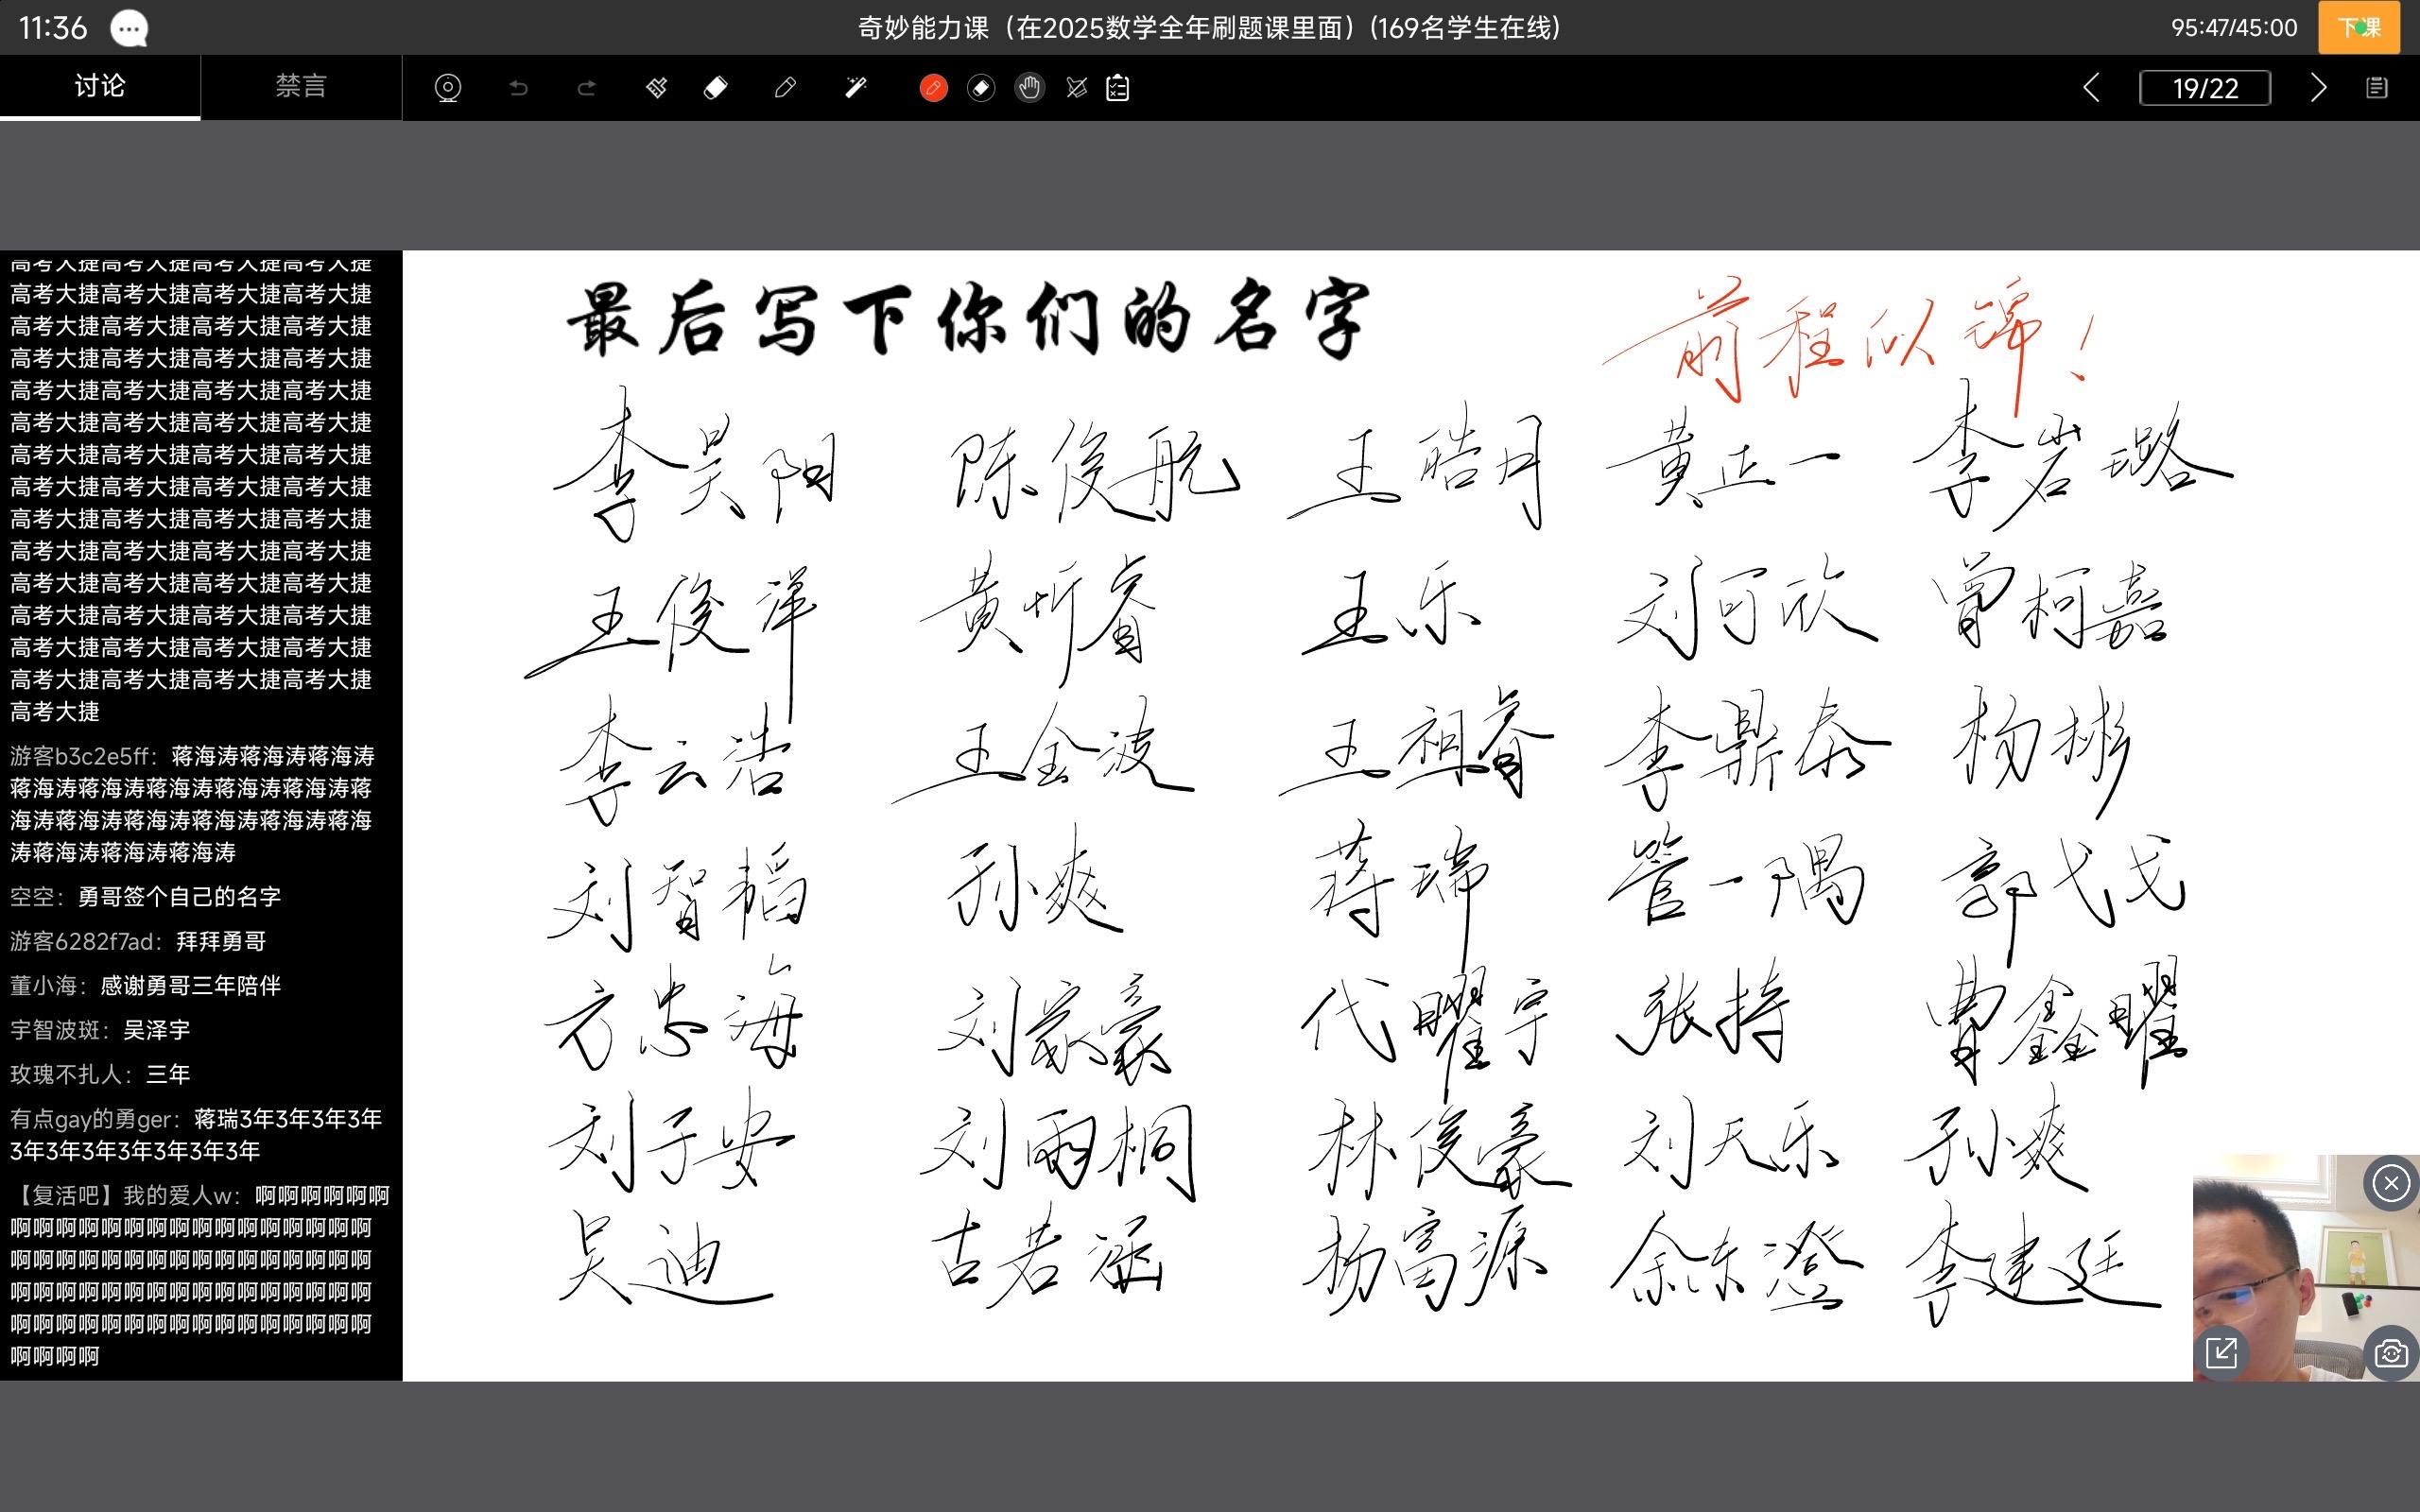 11:36
奇妙能力课（在2025数学全年刷题课里面）(169名学生在线)
95:47/45:00
下课
讨论
禁言
19/22
高考大捷高考大捷高考大捷高考大捷
高考大捷高考大捷高考大捷高考大捷
高考大捷高考大捷高考大捷高考大捷
高考大捷高考大捷高考大捷高考大捷
高考大捷高考大捷高考大捷高考大捷
高考大捷高考大捷高考大捷高考大捷
高考大捷高考大捷高考大捷高考大捷
高考大捷高考大捷高考大捷高考大捷
高考大捷高考大捷高考大捷高考大捷
高考大捷高考大捷高考大捷高考大捷
高考大捷高考大捷高考大捷高考大捷
高考大捷高考大捷高考大捷高考大捷
高考大捷高考大捷高考大捷高考大捷
高考大捷高考大捷高考大捷高考大捷
高考大捷
游客b3c2e5ff：蒋海涛蒋海涛蒋海涛
蒋海涛蒋海涛蒋海涛蒋海涛蒋海涛蒋
海涛蒋海涛蒋海涛蒋海涛蒋海涛蒋海
涛蒋海涛蒋海涛蒋海涛
空空：勇哥签个自己的名字
游客6282f7ad：拜拜勇哥
董小海：感谢勇哥三年陪伴
宇智波斑：吴泽宇
玫瑰不扎人：三年
有点gay的勇ger：蒋瑞3年3年3年3年
3年3年3年3年3年3年3年
【复活吧】我的爱人w：啊啊啊啊啊啊
啊啊啊啊啊啊啊啊啊啊啊啊啊啊啊啊
啊啊啊啊啊啊啊啊啊啊啊啊啊啊啊啊
啊啊啊啊啊啊啊啊啊啊啊啊啊啊啊啊
啊啊啊啊啊啊啊啊啊啊啊啊啊啊啊啊
啊啊啊啊
最后写下你们的名字
前程似锦！
李昊阳 陈俊航 王皓月 黄正一 李岩璐
王俊洋 黄忻睿 王乐 刘可欣 曾柯嘉
李云浩 王金波 王祖睿 李鼎泰 杨彬
刘智韬 孙爽 蒋瑞 管一隅 郭弋戈
方忠海 刘家豪 代曜宇 张持 曹鑫曜
刘子安 刘雨桐 林俊豪 刘天乐 孙爽
吴迪 古若涵 杨富源 余东澄 李建廷